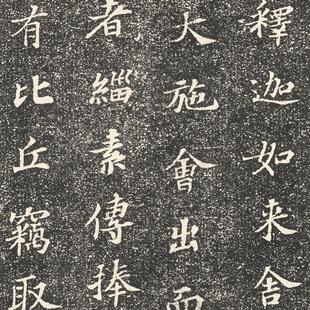 釋迦如来舍
大施會出而
者緇素傳捧
有比丘竊取